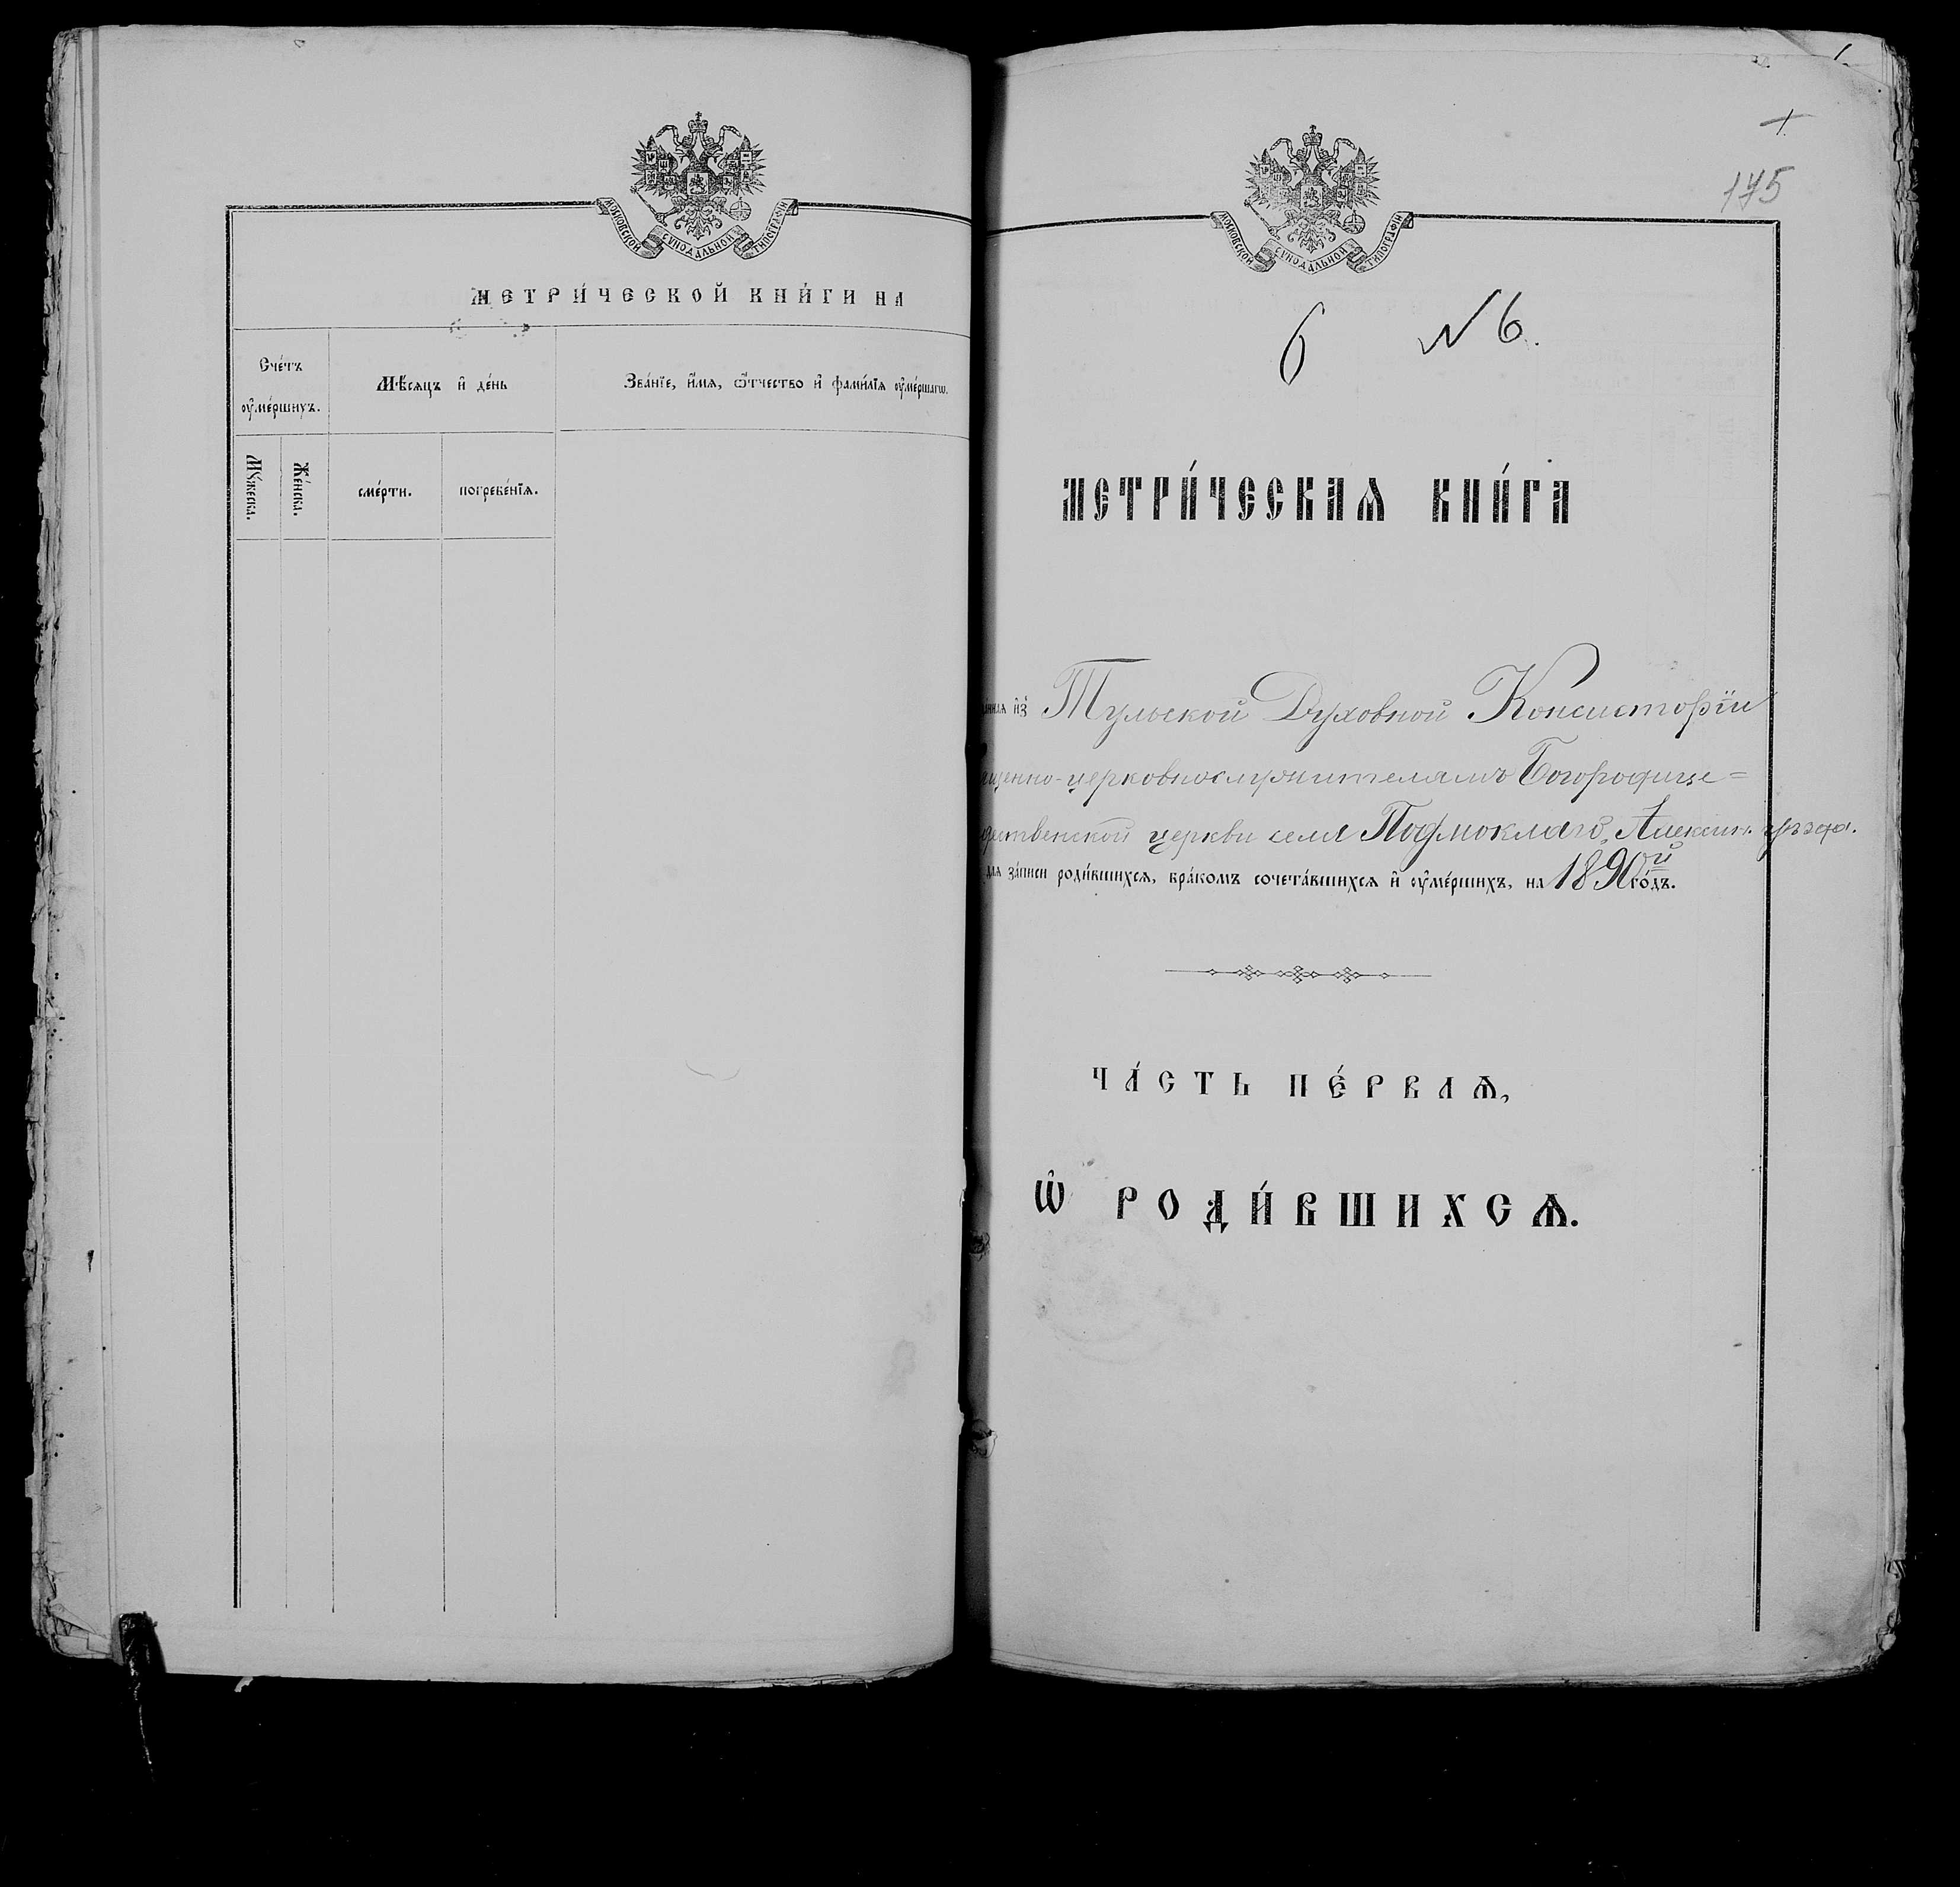 МОСКОВСКОЙ СѴНОДАЛЬНОЙ ТИПОГРАФІИ
МЕТРИ́ЧЕСКОЙ КНИ́ГИ НА
Сче́тъ ᲂу҆ме́ршихъ.
Мѣ́сяцъ и҆ де́нь
Зва́нїе, и҆́мѧ, ѻ҆́тчество и҆ фами́лїѧ ᲂу҆ме́ршагѡ.
Мꙋ́жеска.
Же́нска.
сме́рти.
погребе́нїѧ.
1
1
175
МОСКОВСКОЙ СѴНОДАЛЬНОЙ ТИПОГРАФІИ
6 № 6.
МЕТРИ́ЧЕСКАѦ КНИ́ГА
и҆з̾ Тульской Духовной Консисторіи
щенно-церковнослужителямъ Богородице=
ественской церкви села Подмоклаго, Алексин. уѣзда.
для за́писи роди́вшихсѧ, бра́комъ сочета́вшихсѧ и҆ ᲂу҆ме́ршихъ, на 1890ой го́дъ.
ЧА́СТЬ ПЕ́РВАѦ,
Ѡ҆ РОДИ́ВШИХСѦ.